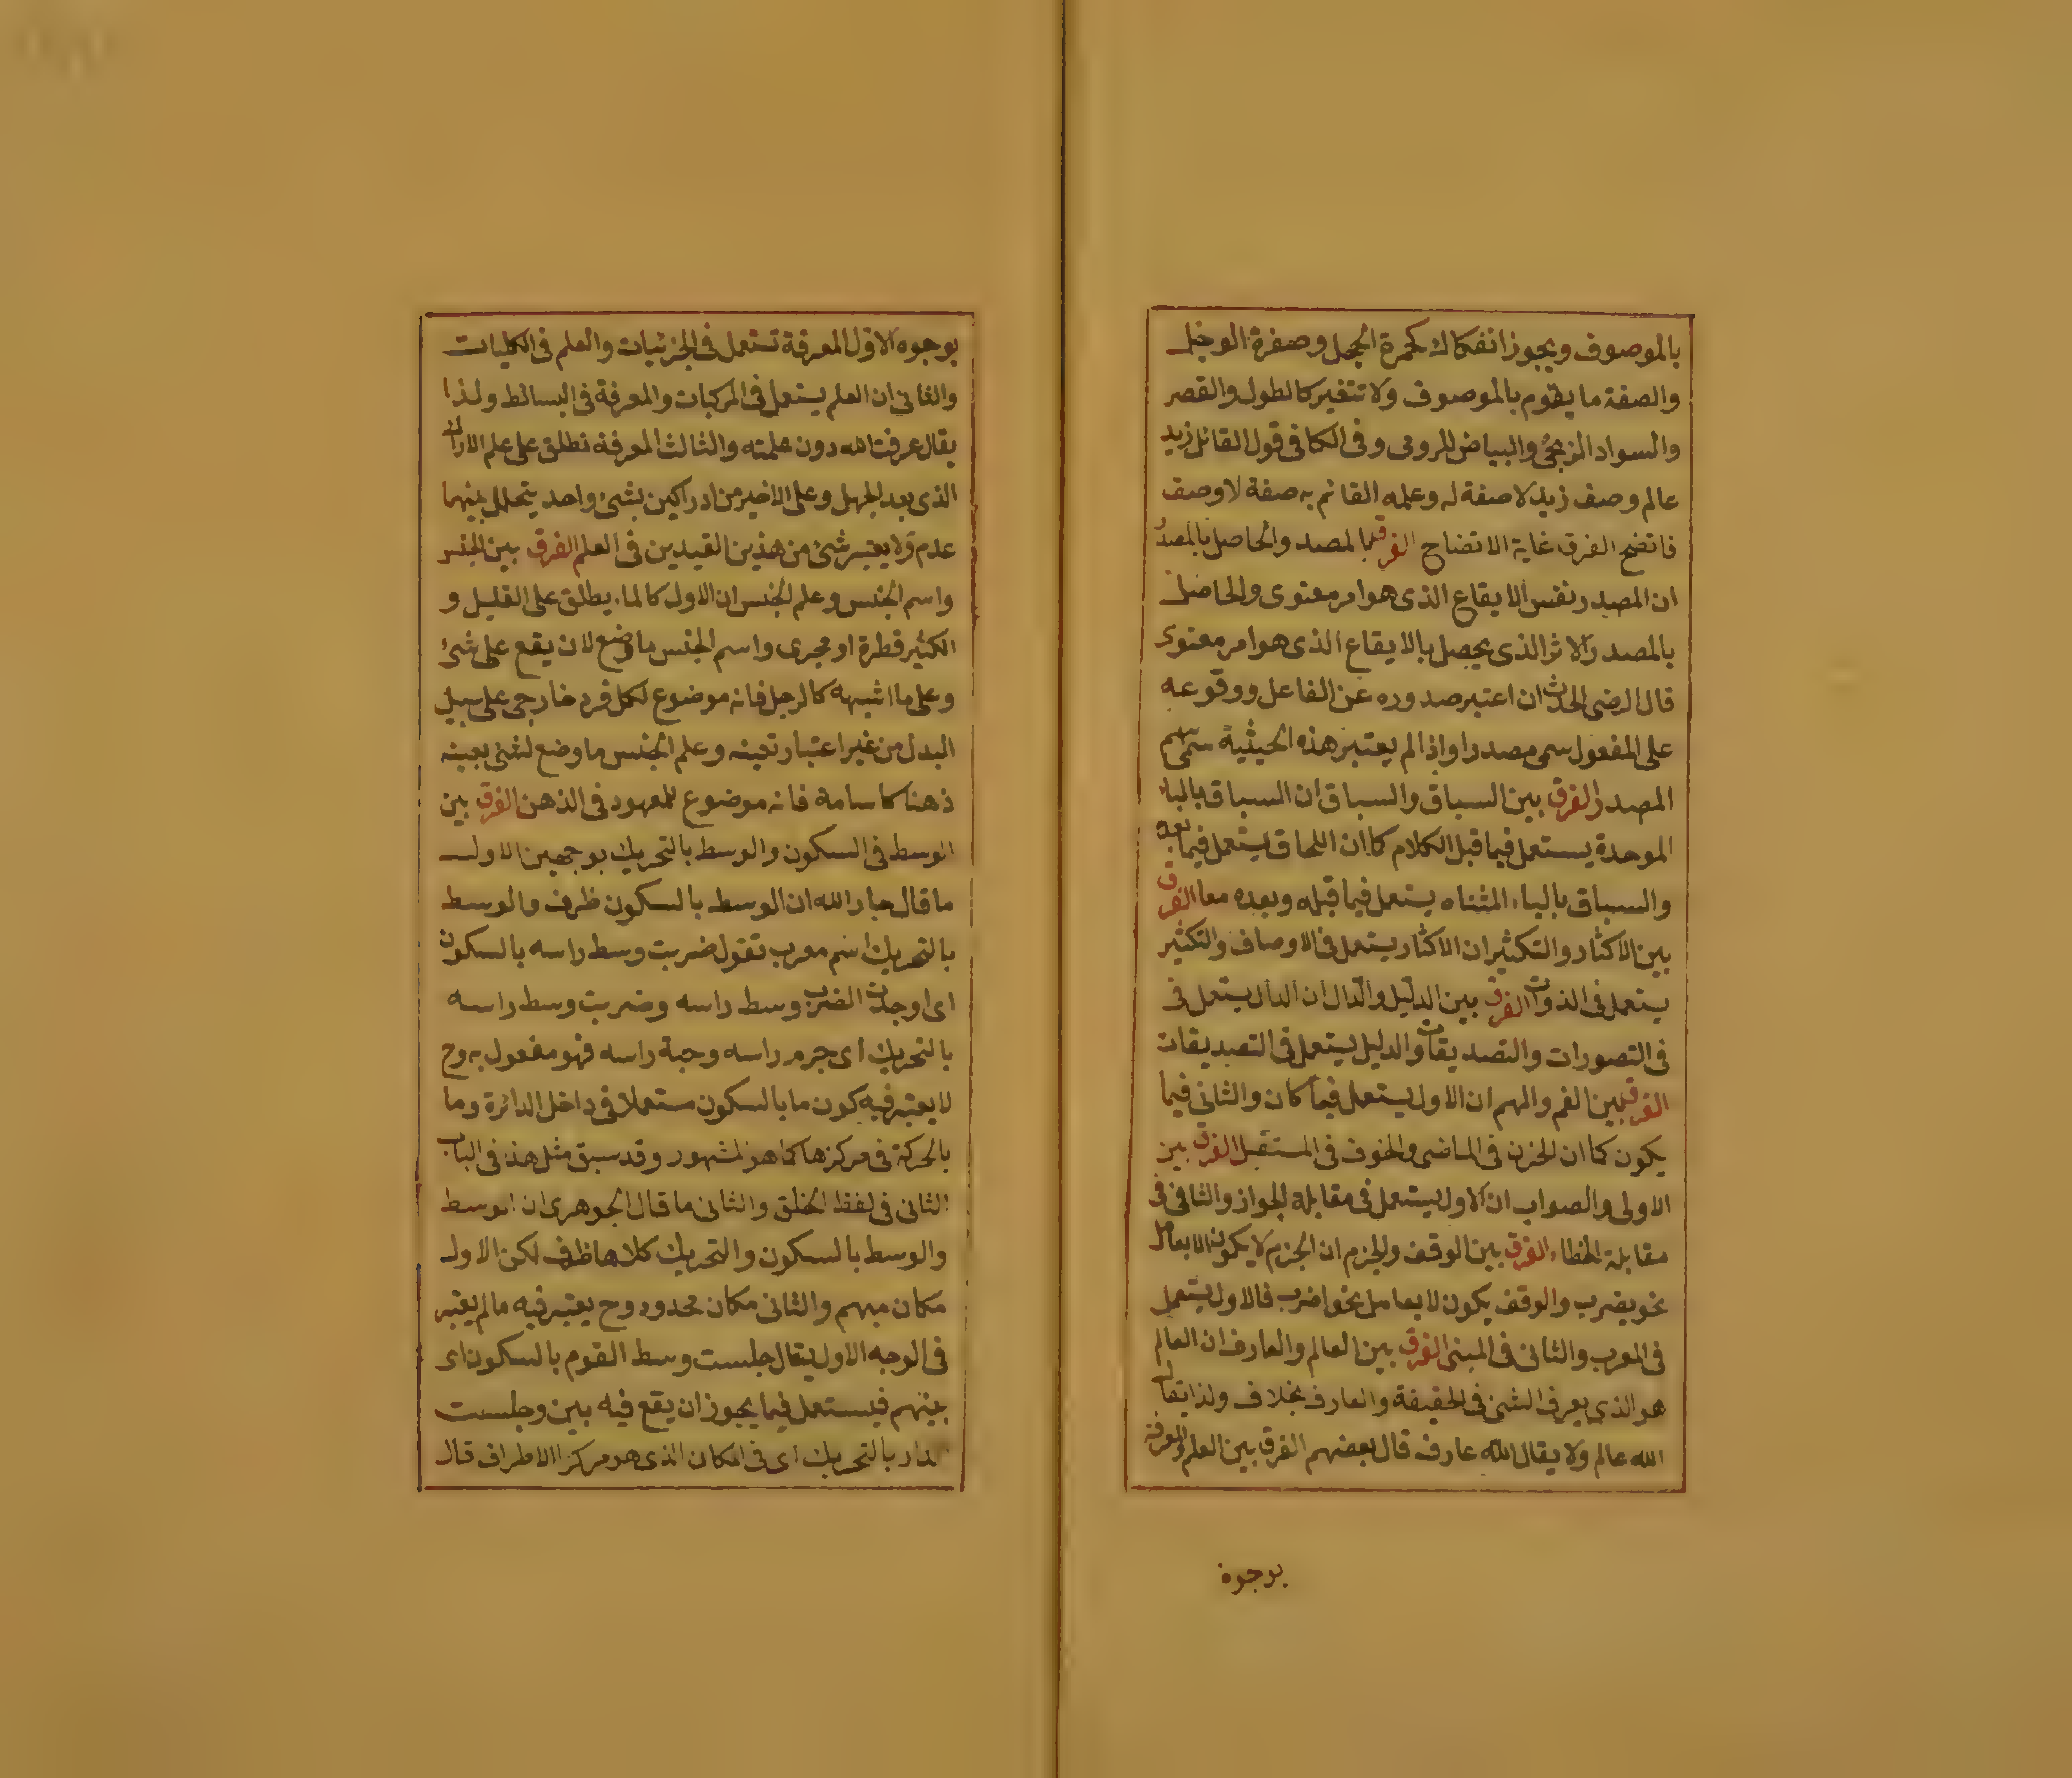 بالموصوف ويجوز انفكاك كحمرة الخجل وصفرة الوجل
والصفة ما يقوم بالموصوف ولا تتغير كالطول والقصر
والسواد الزنجى والبياض للرومى وفى الكافى قول القائل زيد
عالم وصف زيد لا صفة له وعلمه القائم به صفة لا وصف
فاتضح الفرق غاية الاتضاح الفرق المصدر والحاصل بالمصدر
ان المصدر نفس الايقاع الذى هو امر معنوى والحاصل
بالمصدر الاثر الذى يحصل بالايقاع الذى هو امر معنوى
قال الرضى الحدث ان اعتبر صدوره عن الفاعل ووقوعه
على المفعول سمى مصدرا واذا لم يعتبر هذه الحيثية سمى اسم
المصدر الفرق بين السباق والسياق ان السباق بالباء
الموحدة يستعمل فيما قبل الكلام كما ان اللحاق يستعمل فيما بعده
والسياق بالياء المثناه يستعمل فيما قبله وبعده معا الفرق
بين الاكثار والتكثير ان الاكثار يستعمل فى الاوصاف والتكثير
يستعمل فى الذوات الفرق بين الدليل والدال ان الدال يستعمل فى
فى التصورات والتصديقات والدليل يستعمل فى التصديقات
الفرق بين الغم والهم ان الاول يستعمل فيما كان والثانى فيما
يكون كما ان الحزن فى الماضى والخوف فى المستقبل الفرق بين
الاولى والصواب ان الاول يستعمل فى مقابلة الجواز والثانى فى
مقابلة الخطاء الفرق بين الوقف والجزم ان الجزم لا يكون الا بعامل
نحو يضرب والوقف يكون لا بعامل نحو اضرب فالاول يستعمل
فى المعرب والثانى فى المبنى الفرق بين العالم والعارف ان العالم
هو الذى يعرف الشئ فى الحقيقة والعارف بخلاف ولذا يقال
الله عالم ولا يقال الله عارف قال بعضهم الفرق بين العلم والمعرفة
بوجوه
بوجوه الاول المعرفة تستعمل فى الجزئيات والعلم فى الكليات
والثانى ان العلم يستعمل فى المركبات والمعرفة فى البسائط ولذا
يقال عرفت الله دون علمته والثالث المعرفة تطلق على علم الادراك
الذى بعد الجهل وعلى الاخير من ادراكين بشئ واحد يتخلل بينهما
عدم ولا يعتبر شئ من هذين القيدين فى العلم الفرق بين الجنس
واسم الجنس وعلم الجنس ان الاول كالماء يطلق على القليل و
الكثير قطرة او مجرى واسم الجنس ما وضع لان يقع على شئ
وعلى ما اشبهه كالرجل فانه موضوع لكل فرد خارجى على سبيل
البدل من غير اعتبار تعينه وعلم الجنس ما وضع لشئ بعينه
ذهنا كاسامة فانه موضوع للمعهود فى الذهن الفرق بين
الوسط فى السكون والوسط بالتحريك بوجهين الاول
ما قال جار الله ان الوسط بالسكون ظرف والوسط
بالتحريك اسم معرب تقول ضربت وسط راسه بالسكون
اى اوجدت الضرب وسط راسه وضربت وسط راسه
بالتحريك اى جرم راسه وجبة راسه فهو مفعول به وح
لا يعتبر فيه كون ما بالسكون مستعملا فى داخل الدائرة وما
بالحركة فى مركزها كما هو المشهور وقد سبق مثل هذا فى الباب
الثانى فى لفظ الخلق والثانى ما قال الجوهرى ان الوسط
والوسط بالسكون والتحريك كلاهما ظرف لكن الاول
مكان مبهم والثانى مكان محدود وح يعتبر فيه مالم يعتبر
فى الوجه الاول يقال جلست وسط القوم بالسكون اى
بينهم فيستعمل فيما يجوز ان يقع فيه بين وجلست
الدار بالتحريك اى فى المكان الذى هو مركز الاطراف قال